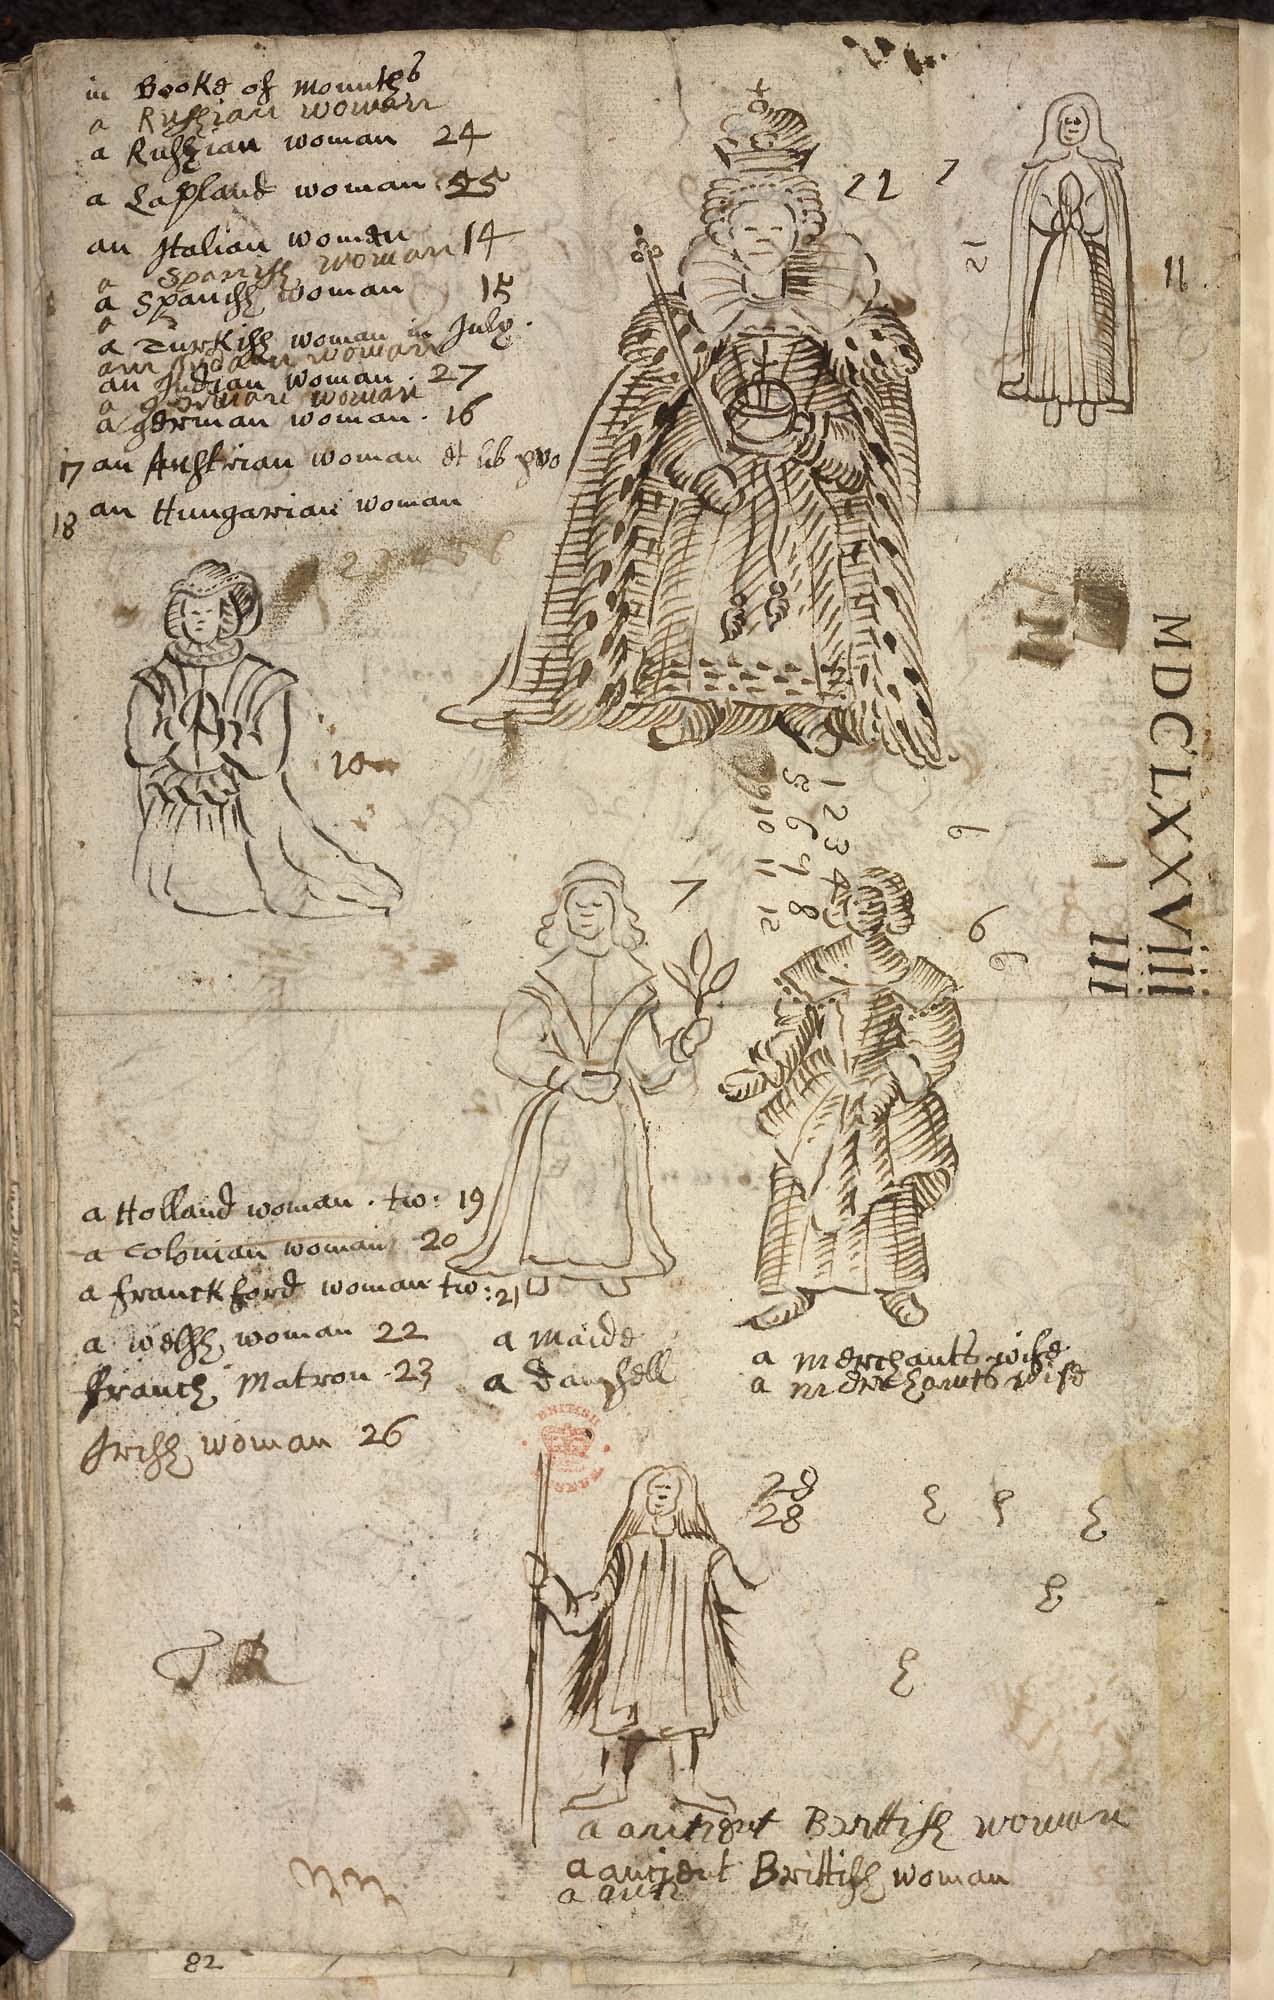 in Booke of Mounths
a Russhian woman
a Russhian woman 24
a Lapland woman 25
an Italian woman 14
a Spanish woman
a Spanish woman 15
a
a Turkish woman in July.
an Indian woman
an Indian woman. 27
a german woman
a german woman. 16
17 an Austrian woman et lib
18 an Hungarian woman
22
7
12
11
10
MDCLXXViiii
III
1 2 3 4
5 6 9 8
9 10 11 12
6
6
6
7
a Holland woman. tw: 19
a Colonian woman 20
a franckford woman tw: 21
a welsh woman 22
french Matron. 23
Irish woman 26
a maide
a damsell
a merchants wife
a merchants wife
BRITISH
28
28
TR
a antient Brittish woman
a ancient Brittish woman
a anti
82